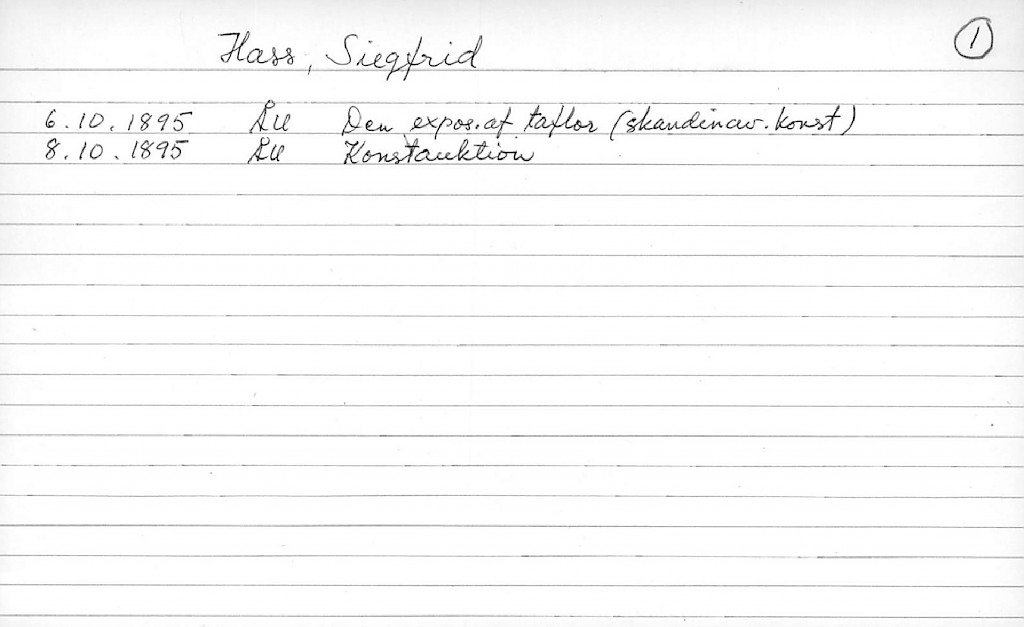 Hass, Siegfrid
1
6.10.1895 ÅU Den expos. af taflor (skandinav. konst)
8.10.1895 ÅU Konstauktion